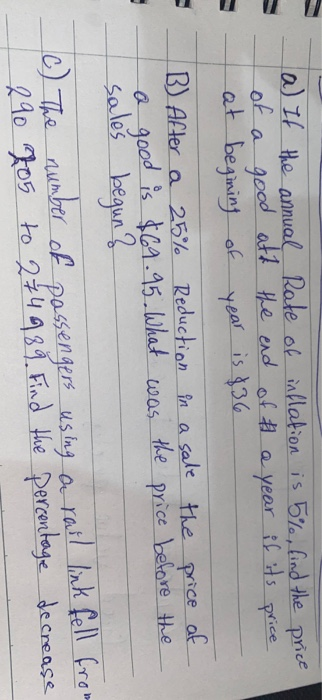 a) If the annual Rate of inflation is 5%, find the price
of a good att the end of a year if its price
at begining of year is $36
B) After a 25% Reduction in a sale the price of
a good is $69.95. What was the price before the
sales begun?
C) The number of passengers using a rail link fell from
290 205 to 274989. Find the percentage decrease